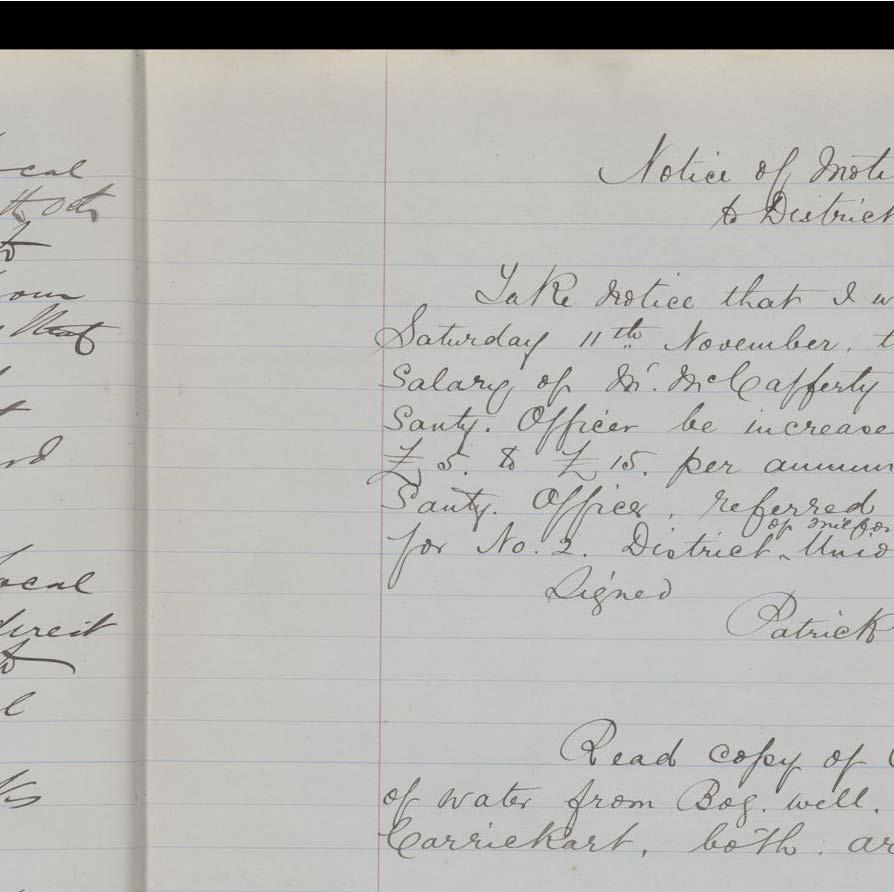 cal
to
our
rd
local
direct
to
l
Notice of Moti
to District
Take Notice that I w
Saturday 11th November, t
Salary of Mr. McCafferty
Santy. Officer be increase
£5. to £15. per annum
Santy. Officer, referred
of Milfor
for No. 2. District Unio
Signed
Patrick
Read copy of
of water from Bog. well.
Carrickart, both ar